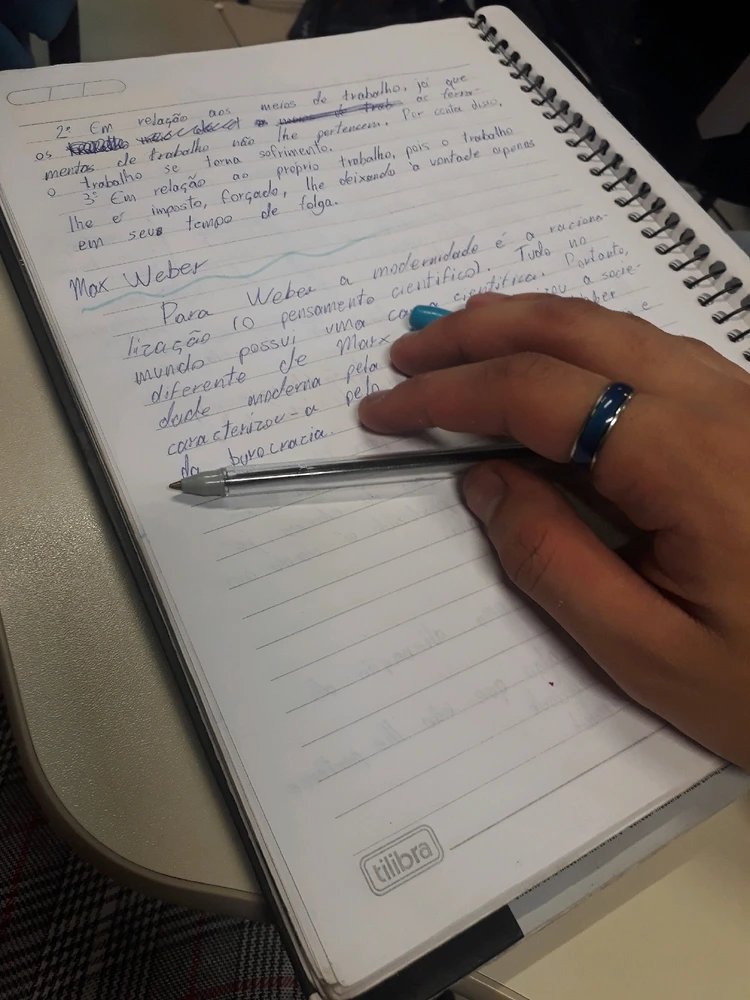 2º Em relação aos meios de trabalho, já que
os as ferra-
mentas de trabalho não lhe pertencem. Por conta disso,
o trabalho se torna sofrimento.
3º Em relação ao próprio trabalho, pois o trabalho
lhe é imposto, forçado, lhe deixando à vontade apenas
em seus tempo de folga.
Max Weber
Para Weber a modernidade é a raciona-
lização (o pensamento científico). Tudo no
mundo possui uma científica. Portanto,
diferente de Marx a socie-
dade moderna pela
caracterizou-a pelo e
da burocracia.
tilibra